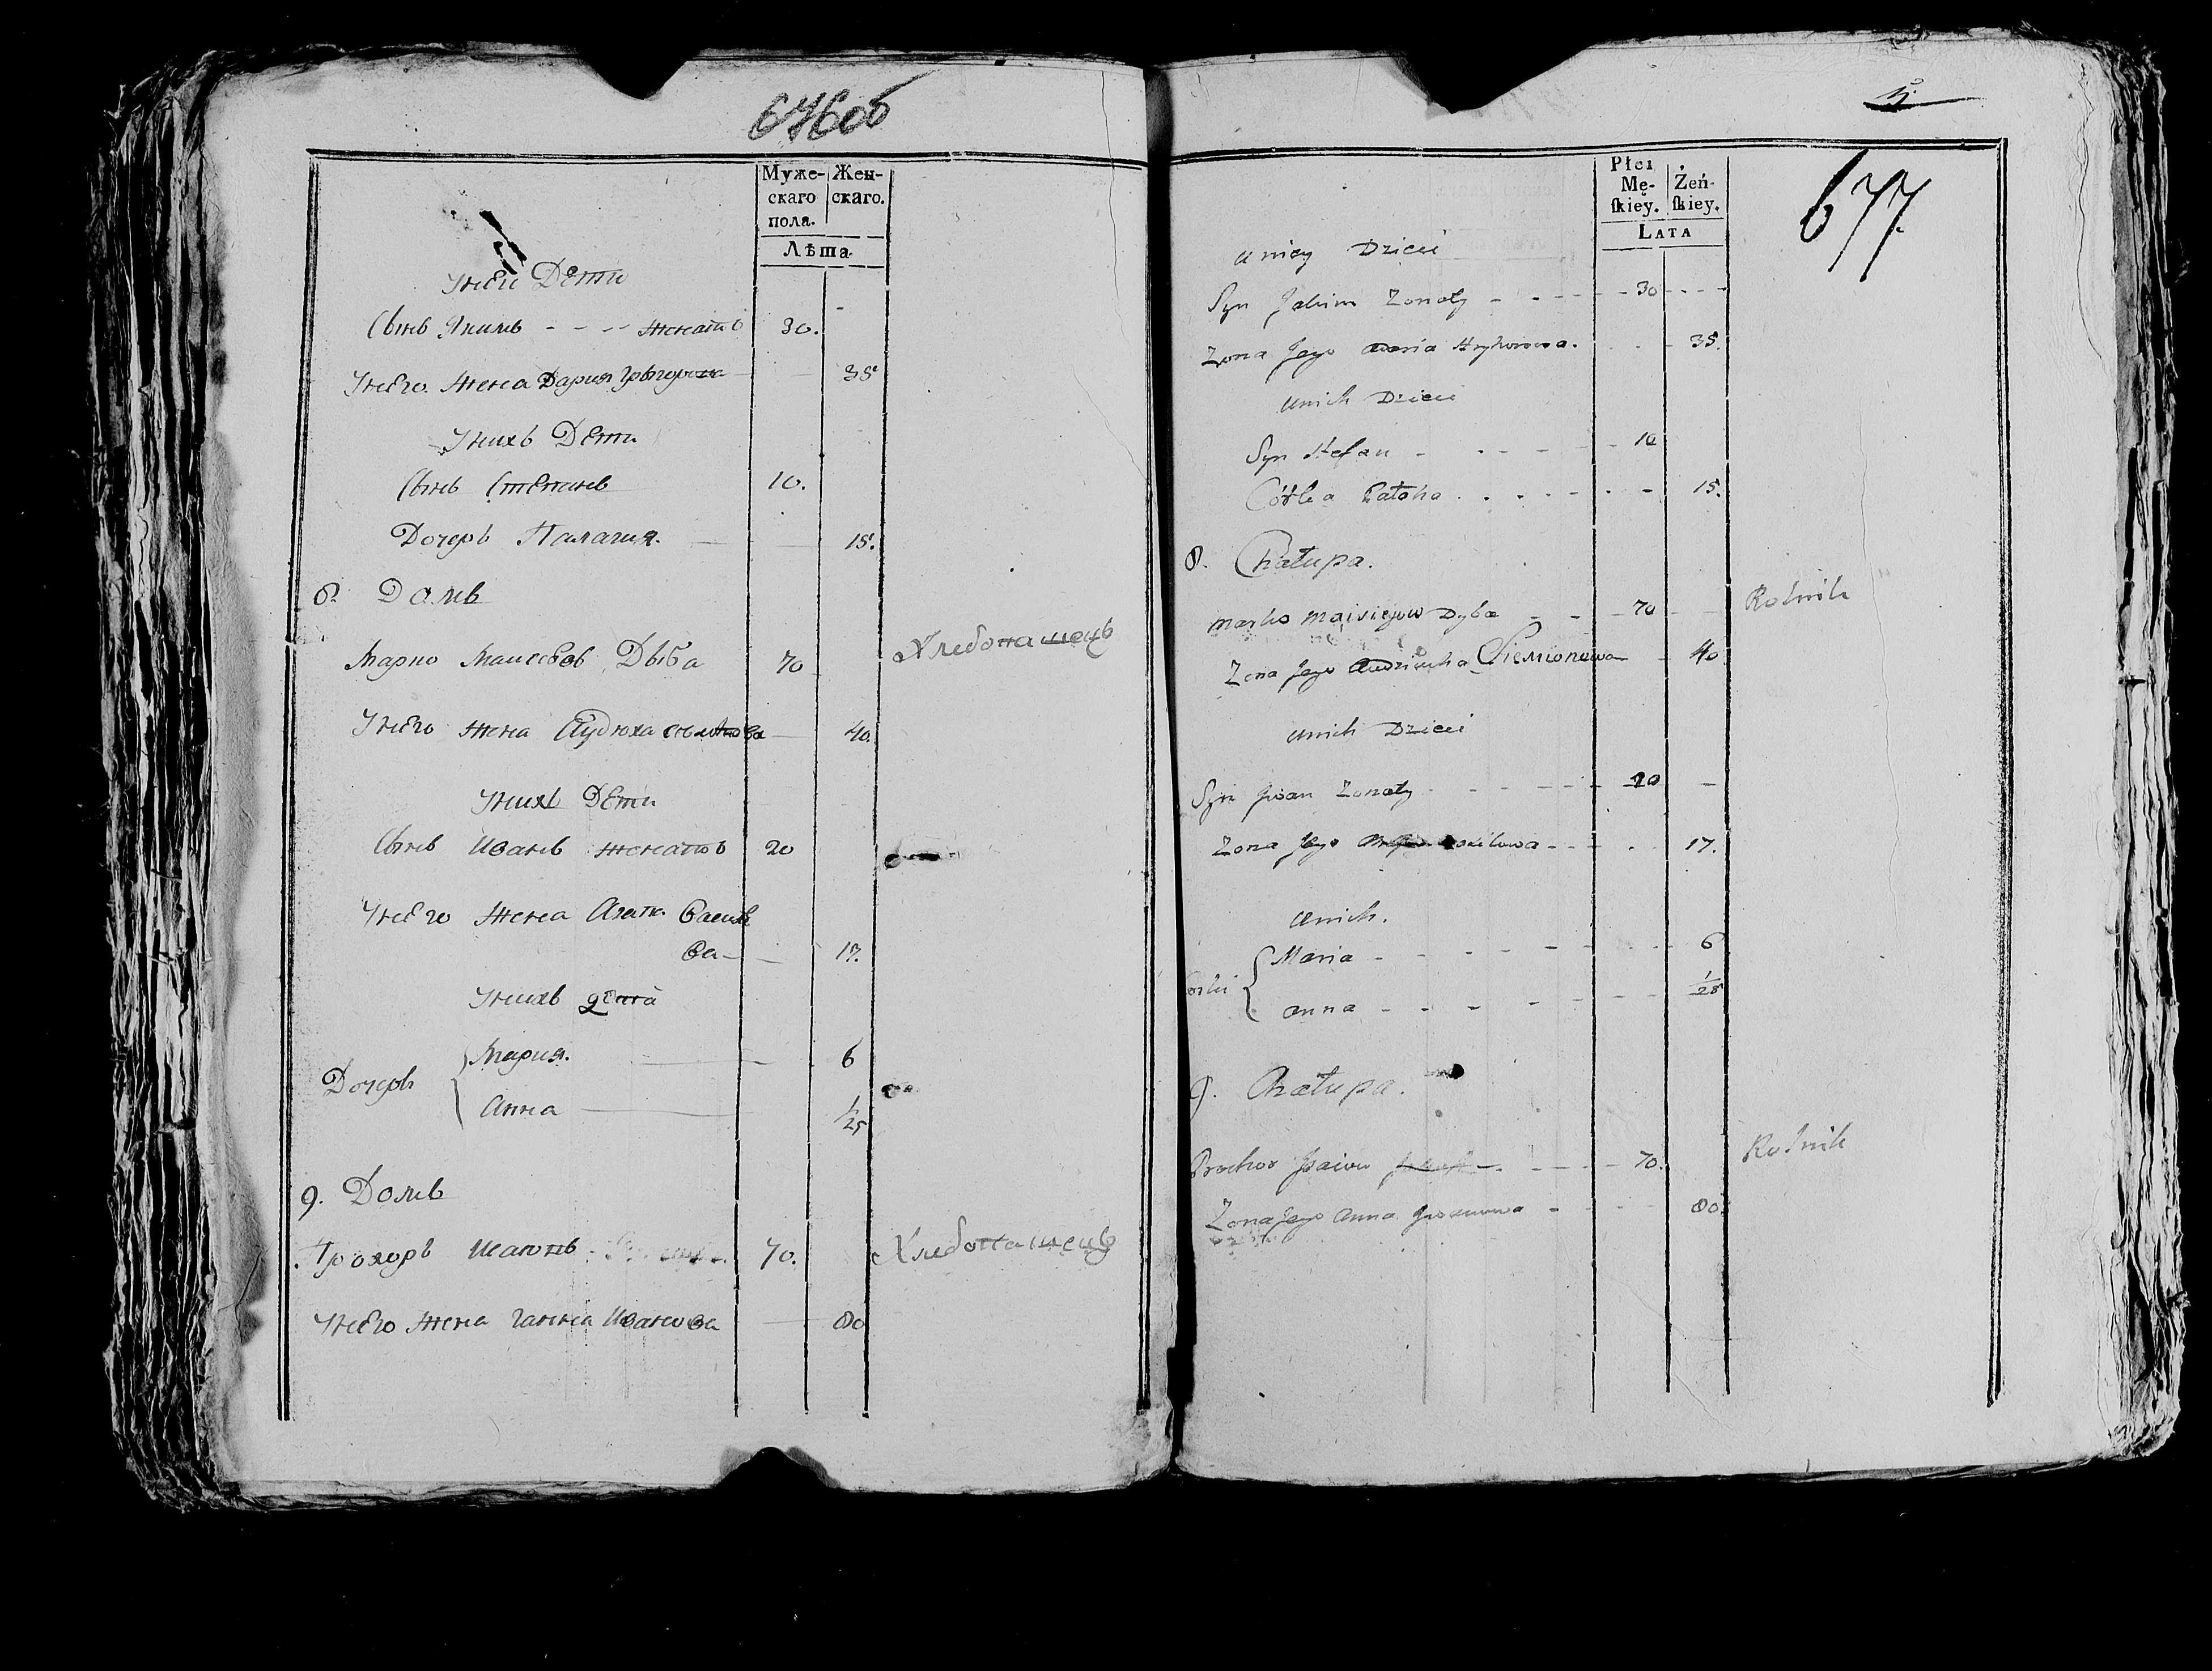 676об
Муже-
скаго
пола.
Жен-
скаго.
Лѣта.
У ней Дети
Сынъ Якимъ - - - женатъ 30.
У него жена Дария Грыгорова 35
У нихъ Дети
Сынъ Степанъ 10.
Дочеръ Палагия. 15.
8. Домъ
Марко Маисеовъ Дыба 70 Хлебопашецъ
У него жена Евдюха 40.
У нихъ Дети
Сынъ Иванъ женатъ 20
У него жена Агата Василе
ва 17.
У нихъ дети
Дочеръ { Мария. 6
Анна 1/25
9. Домъ
Прохоръ Исаювъ 70. Хлебопашецъ
У него жена Ганна Иванова 80
5.
677.
Płci
Mę-
ſkiey.
Żeń-
ſkiey.
LATA
u niey Dzieci
Syn Jakim Zonaty - - - 30
Zona Jego Daria Hryhorowa. 35.
u nich Dzieci
Syn Stefan - 10
Córka Pałaha 15.
8. Chałupa.
Marko Maisieiow Dyba 70 Rolnik
Zona Jego Siemionowa 40
u nich Dzieci
Syn Iwan Zonaty 20
Zona Jego 17.
u nich.
Corki { Maria - 6
Anna - 1/25
9. Chałupa.
Prochor Isaiow 70. Rolnik
Zona Jego Anna Iwanowa - 80.